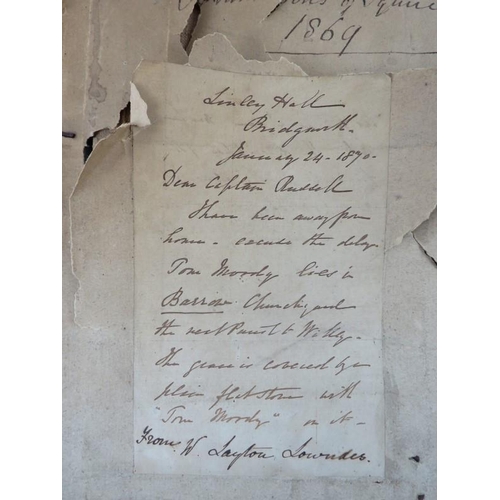 of Squire
1869
Linley Hall
Bridgnorth.
January 24 - 1870 -
Dear Captain Russell
I have been away from
home - excuse the delay
Tom Moody lies in
Barrow Churchyard
the next Parish to Willey.
The grave is covered by a
plain flat stone with
"Tom Moody" on it -
From W. Layton Lowndes.